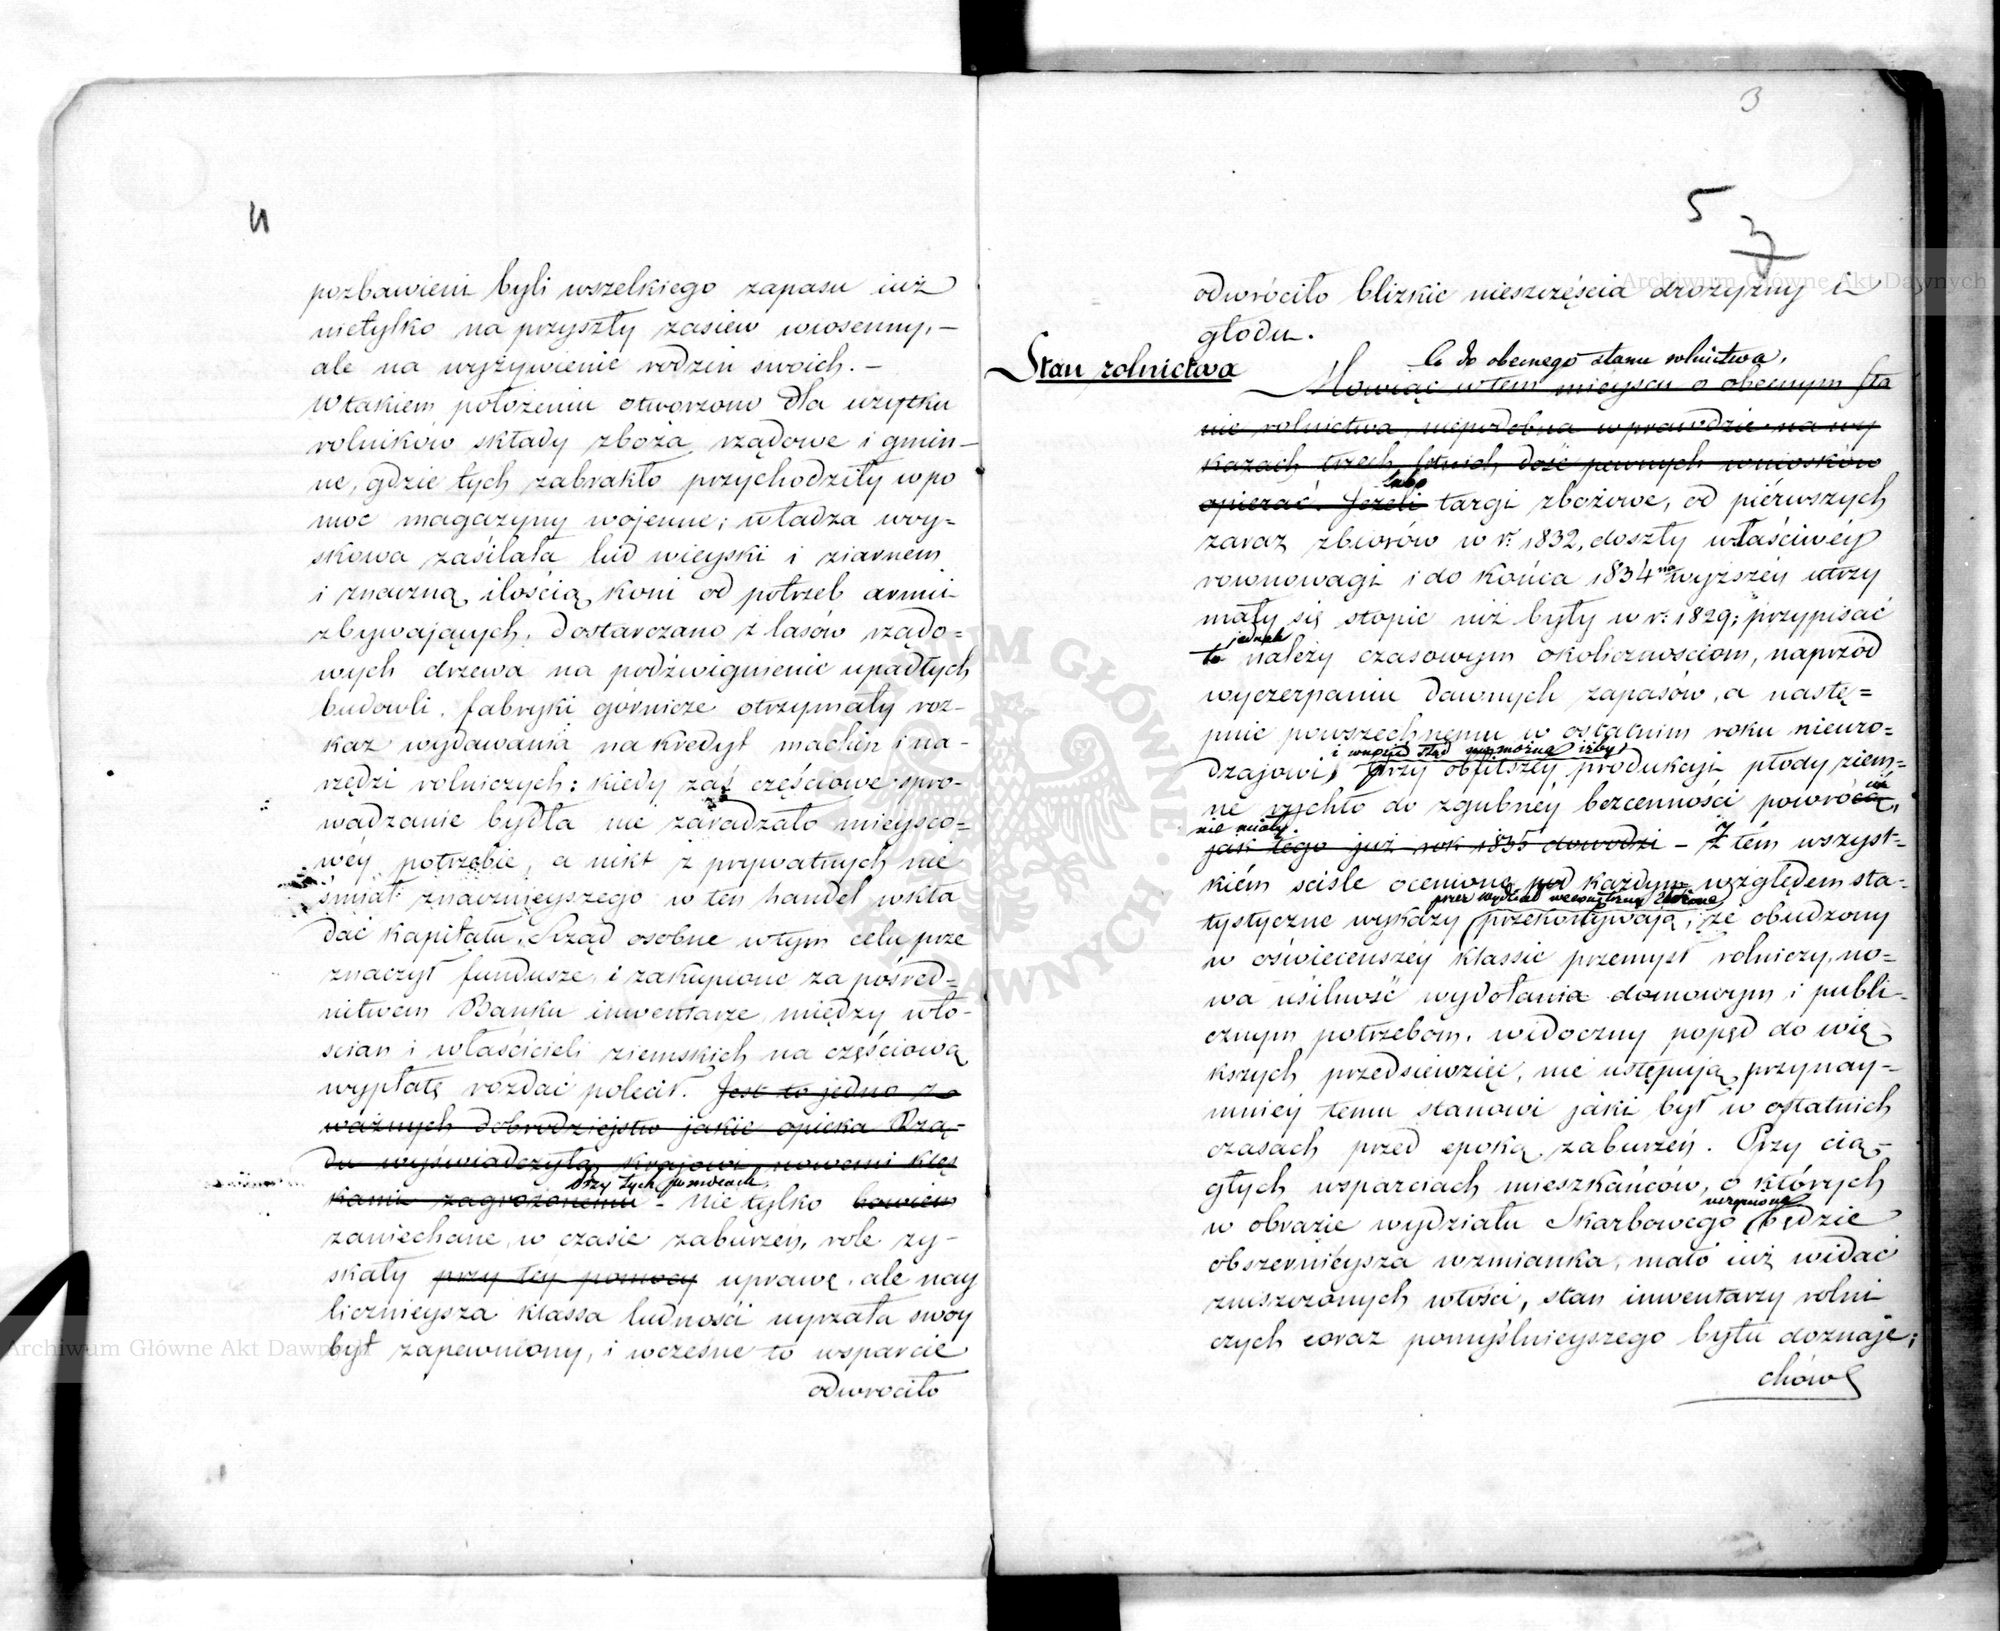 4
pozbawieni byli wszelkiego zapasu iuż
nietylko na przyszły zasiew wiosenny, —
ale na wyżywienie rodzin swoich. —
W takiem położeniu otworzono dla użytku
rolników składy zboża rządowe i gmin-
ne, gdzie tych zabrakło przychodziły w po
moc magazyny wojenne; władza woy=
skowa zasilała lud wieyski i ziarnem
i znaczną ilością koni od potrzeb armii
zbywających. Dostarczano z lasów rządo=
wych drzewa na podźwignienie upadłych
budowli. fabryki górnicze otrzymały roz-
kaz wydawania na kredyt machin i na-
rzędzi rolniczych: kiedy zaś częściowe spro-
wadzanie bydła nie zaradzało mieysco=
wéy potrzebie, a nikt z prywatnych nie
śmiał znacznieyszego w ten handel wkła
dać kapitału. Rząd osobne w tym celu prze
znaczył fundusze, i zakupione za pośred=
nitwem Banku inwentarze między wło-
scian i właścicieli ziemskich na częściową
wypłatę rozdać polecił. Jest to jedno z
ważnych dobrodziejstw jakie opieka Rzą-
du wyświadczyła krajowi nowemi klęs
przy tych pomocach,
kami zagrożonemu - Nie tylko bowiem
zaniechane w czasie zaburzeń, role zy-
skały przy tey pomocy uprawę, ale nay
licznieysza klassa ludności uyrzała swoy
był zapewniony, i wczesne to wsparcie
odwrociło
3
5
3
odwróciło blizkie nieszczęścia drożyzny i
głodu.
Stan rolnictwa
Co do obecnego stanu rolnictwa,
Mówiąc w tem mieyscu o obecnym sta
nie rolnictwa, niepodobna wprawdzie na wy
kazach trzech letnich dość pewnych wniosków
Lubo
opierać. Jeżeli targi zbożowe, od piérwszych
zaraz zbiorów w r. 1832, doszły właściwéy
rownowagi i do końca 1834 na wyższey utrzy
mały się stopie niż były w r. 1829; przypisać
jednak
to należy czasowym okolicznosciom, naprzód
wyczerpaniu dawnych zapasów, a nastę=
pnie powszechnemu w ostatnim roku nieuro-
i wnosić stąd niemożna iżby
dzajowi, przy obfitszéy produkcyi płody ziem=
ne rychło do zgubnéy bezcenności powrócić
nie miały.
jak tego już rok 1835 dowodzi - Z tém wszyst-
kiém scisle ocenione pod każdym względem sta-
przez Wydział wewnętrzny złożone
tystyczne wykazy przekonywają, że obudzony
w oświeceńszéy klassie przemysł rolniczy, no=
wa usilność wydołania domowym i publi-
cznym potrzebom, widoczny popęd do wię
kszych przedsiewzięć, nie ustępują przynay-
mniéy temu stanowi jaki był w ostatnich
czasach przed epoką zaburzeń. Przy cią-
głych wsparciach mieszkańców, o których
w obrazie wydziału Skarbowego będzie
obszernieysza wzmianka, mało iuż widać
zniszczonych włości, stan inwentarzy rolni
czych coraz pomyślnieyszego bytu doznaje;
chów
Archiwum Główne Akt Dawnych
Archiwum Główne Akt Dawnych
ARCHIWUM GŁÓWNE AKT DAWNYCH